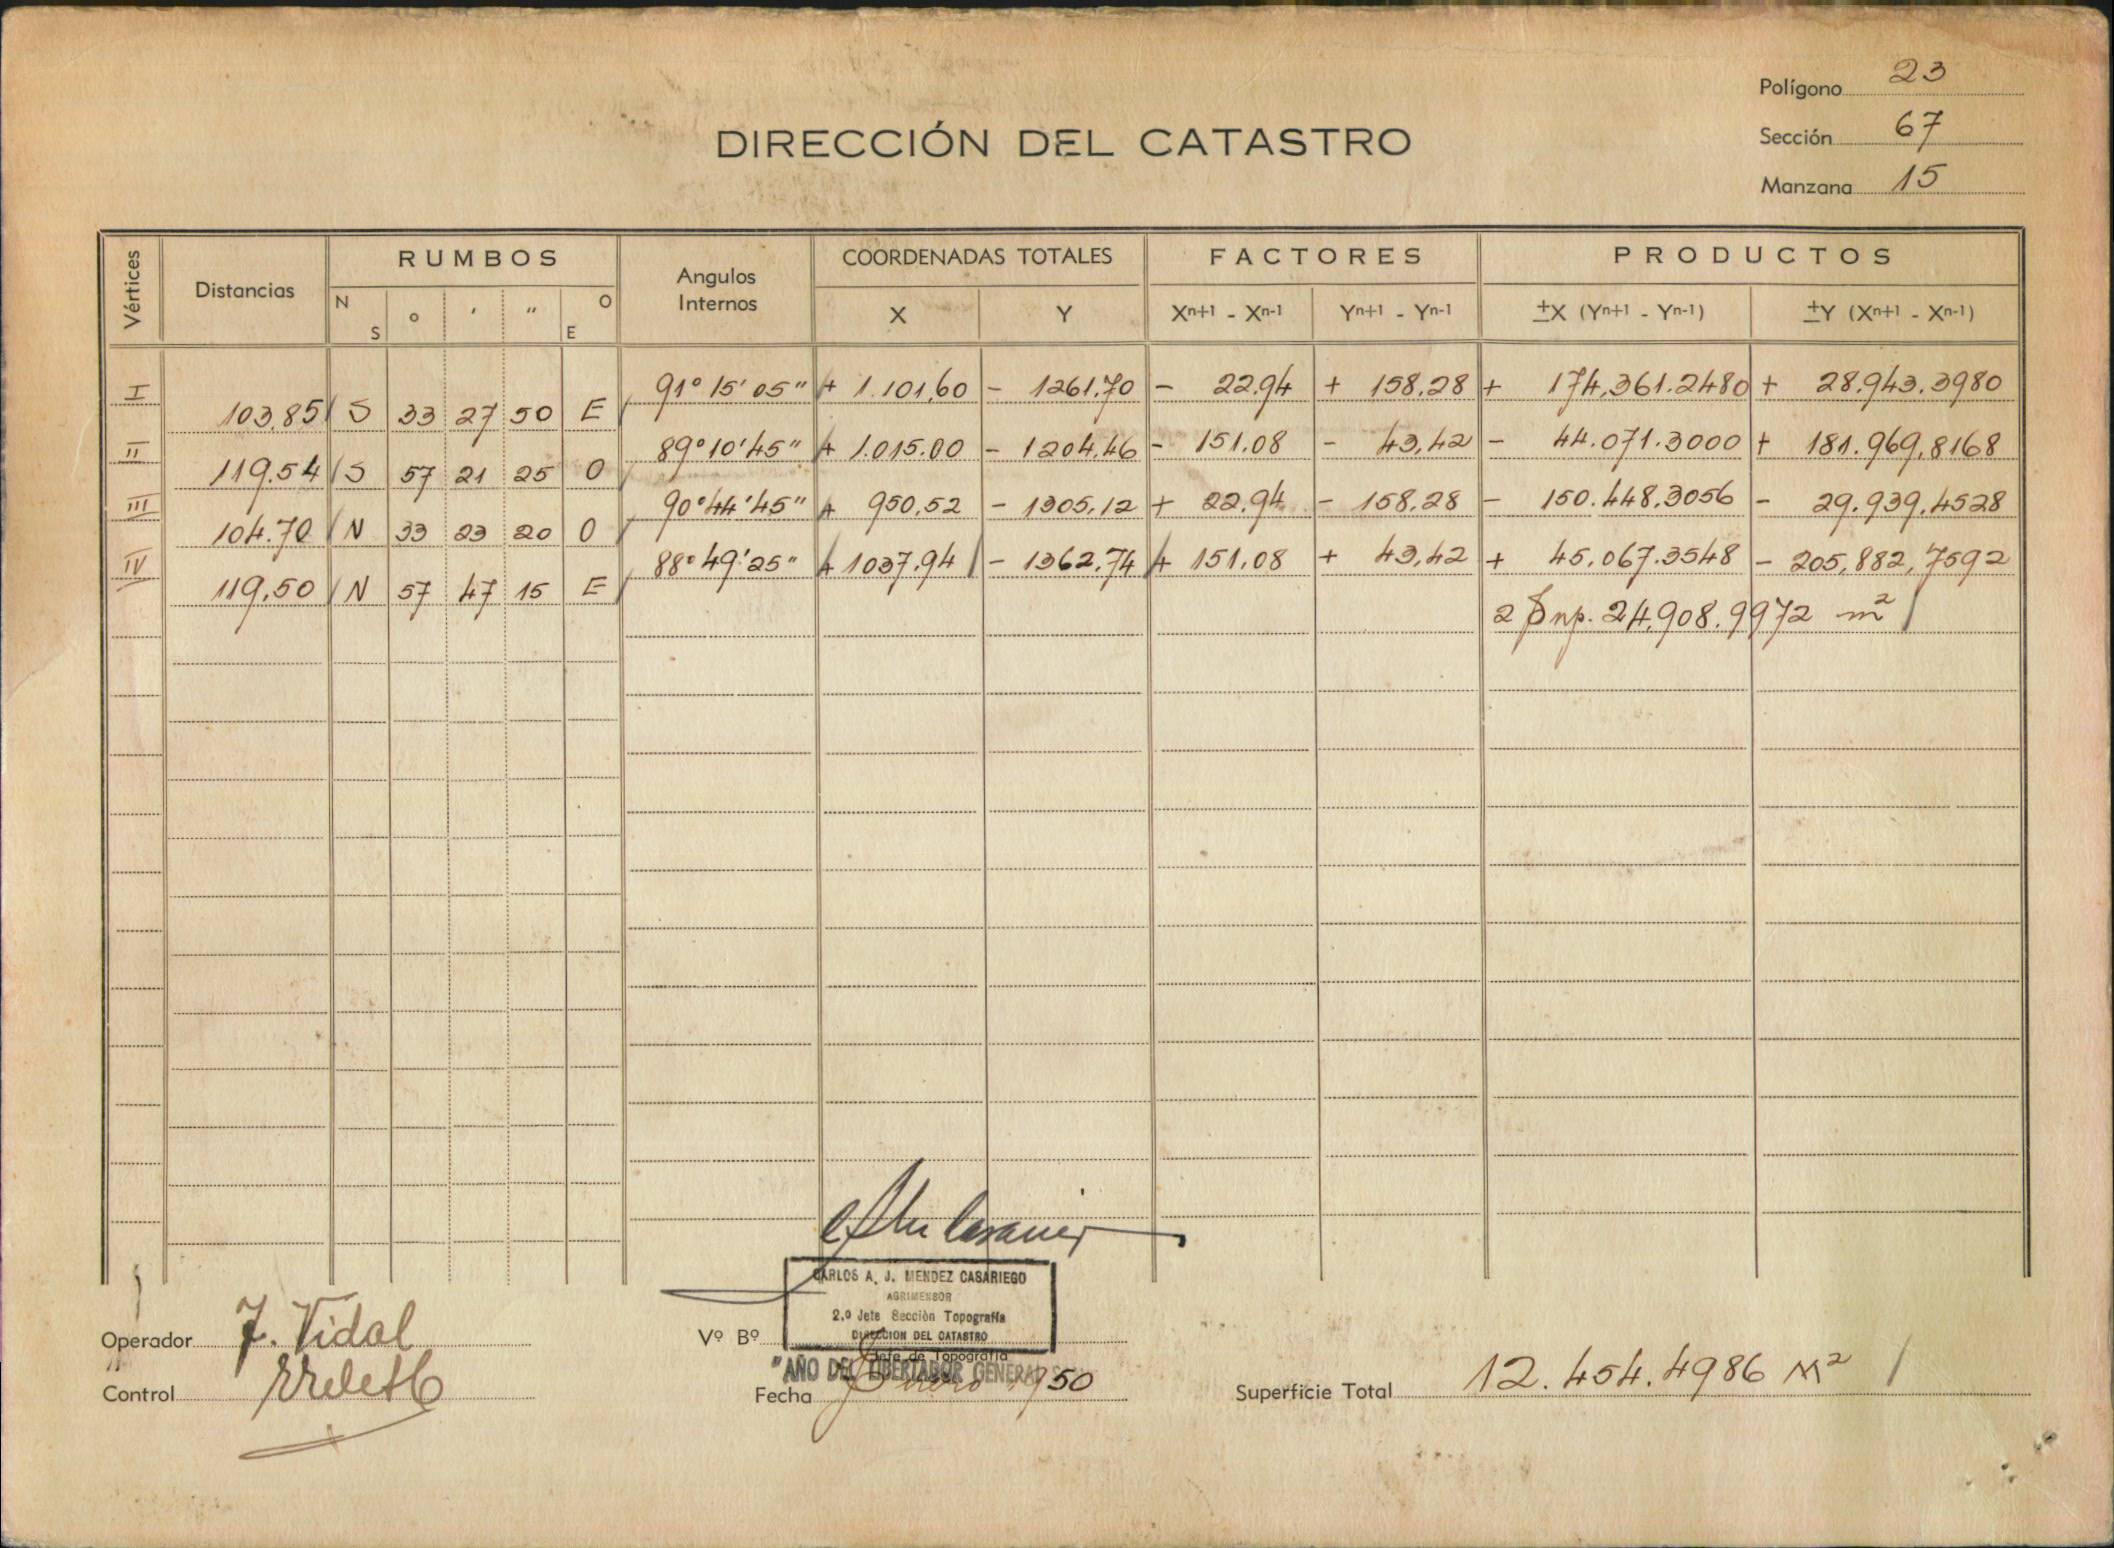 Polígono 23
DIRECCIÓN DEL CATASTRO
Sección 67
Manzana 15
Vértices Distancias RUMBOS Angulos Internos COORDENADAS TOTALES FACTORES PRODUCTOS
N S ° ' " O E X Y Xn+1 - Xn-1 Yn+1 - Yn-1 ±X (Yn+1 - Yn-1) ±Y (Xn+1 - Xn-1)
I 91° 15' 05" + 1.101,60 - 1261,70 - 22.94 + 158,28 + 174,361.2480 + 28.943.3980
103,85 S 33 27 50 E
II 89° 10' 45" + 1.015.00 - 1204,46 - 151.08 - 43,42 - 44.071.3000 + 181.969,8168
119.54 S 57 21 25 O
III 90° 44' 45" + 950,52 - 1305,12 + 22,94 - 158,28 - 150.448,3056 - 29.939,4528
104.70 N 33 23 20 O
IV 88° 49' 25" + 1037,94 - 1362,74 + 151,08 + 43,42 + 45,067.3548 - 205,882,7592
119,50 N 57 47 15 E
2 Sup. 24.908.9972 m²
CARLOS A. J. MENDEZ CASARIEGO
AGRIMENSOR
2.º Jefe Sección Topografía
DIRECCION DEL CATASTRO
Operador J. Vidal
Vº Bº
Jefe de Topografía
"AÑO DEL LIBERTADOR GENERAL
Control
Fecha Enero 1950
Superficie Total 12.454.4986 M²